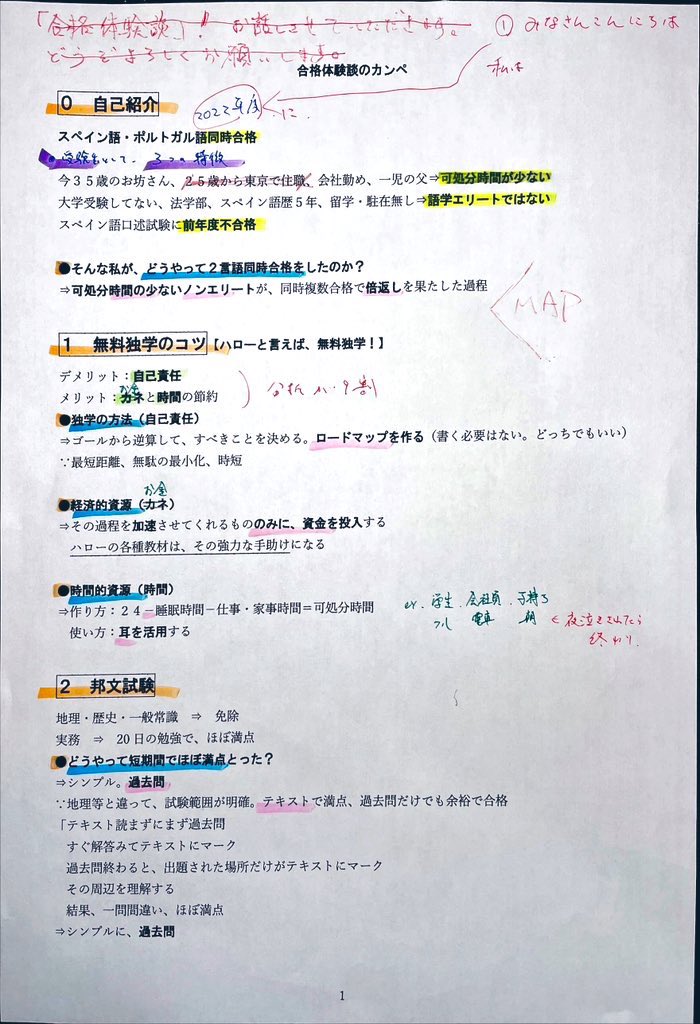 「合格体験談」! お話しさせていただきます。 ① みなさんこんにちは
どうぞよろしくお願いします。
私は
合格体験談のカンペ
0　自己紹介
2022年度に
スペイン語・ポルトガル語同時合格
●受験をして、3つの特徴
今３５歳のお坊さん、２５歳から東京で住職、会社勤め、一児の父⇒可処分時間が少ない
大学受験してない、法学部、スペイン語歴５年、留学・駐在無し⇒語学エリートではない
スペイン語口述試験に前年度不合格
●そんな私が、どうやって２言語同時合格をしたのか？
⇒可処分時間の少ないノンエリートが、同時複数合格で倍返しを果たした過程
MAP
1　無料独学のコツ【ハローと言えば、無料独学！】
デメリット：自己責任
お金
メリット：カネと時間の節約
分析が９割
●独学の方法（自己責任）
⇒ゴールから逆算して、すべきことを決める。ロードマップを作る（書く必要はない。どっちでもいい）
∵最短距離、無駄の最小化、時短
お金
●経済的資源（カネ）
⇒その過程を加速させてくれるもののみに、資金を投入する
ハローの各種教材は、その強力な手助けになる
●時間的資源（時間）
⇒作り方：２４－睡眠時間－仕事・家事時間＝可処分時間
ex. 学生、会社員、子持ち
使い方：耳を活用する
フル 電車 朝 ← 夜泣きされたら
終わり
2　邦文試験
地理・歴史・一般常識　⇒　免除
実務　⇒　20日の勉強で、ほぼ満点
●どうやって短期間でほぼ満点とった？
⇒シンプル。過去問
∵地理等と違って、試験範囲が明確。テキストで満点、過去問だけでも余裕で合格
「テキスト読まずにまず過去問
すぐ解答みてテキストにマーク
過去問終わると、出題された場所だけがテキストにマーク
その周辺を理解する
結果、一問間違い、ほぼ満点
⇒シンプルに、過去問
1